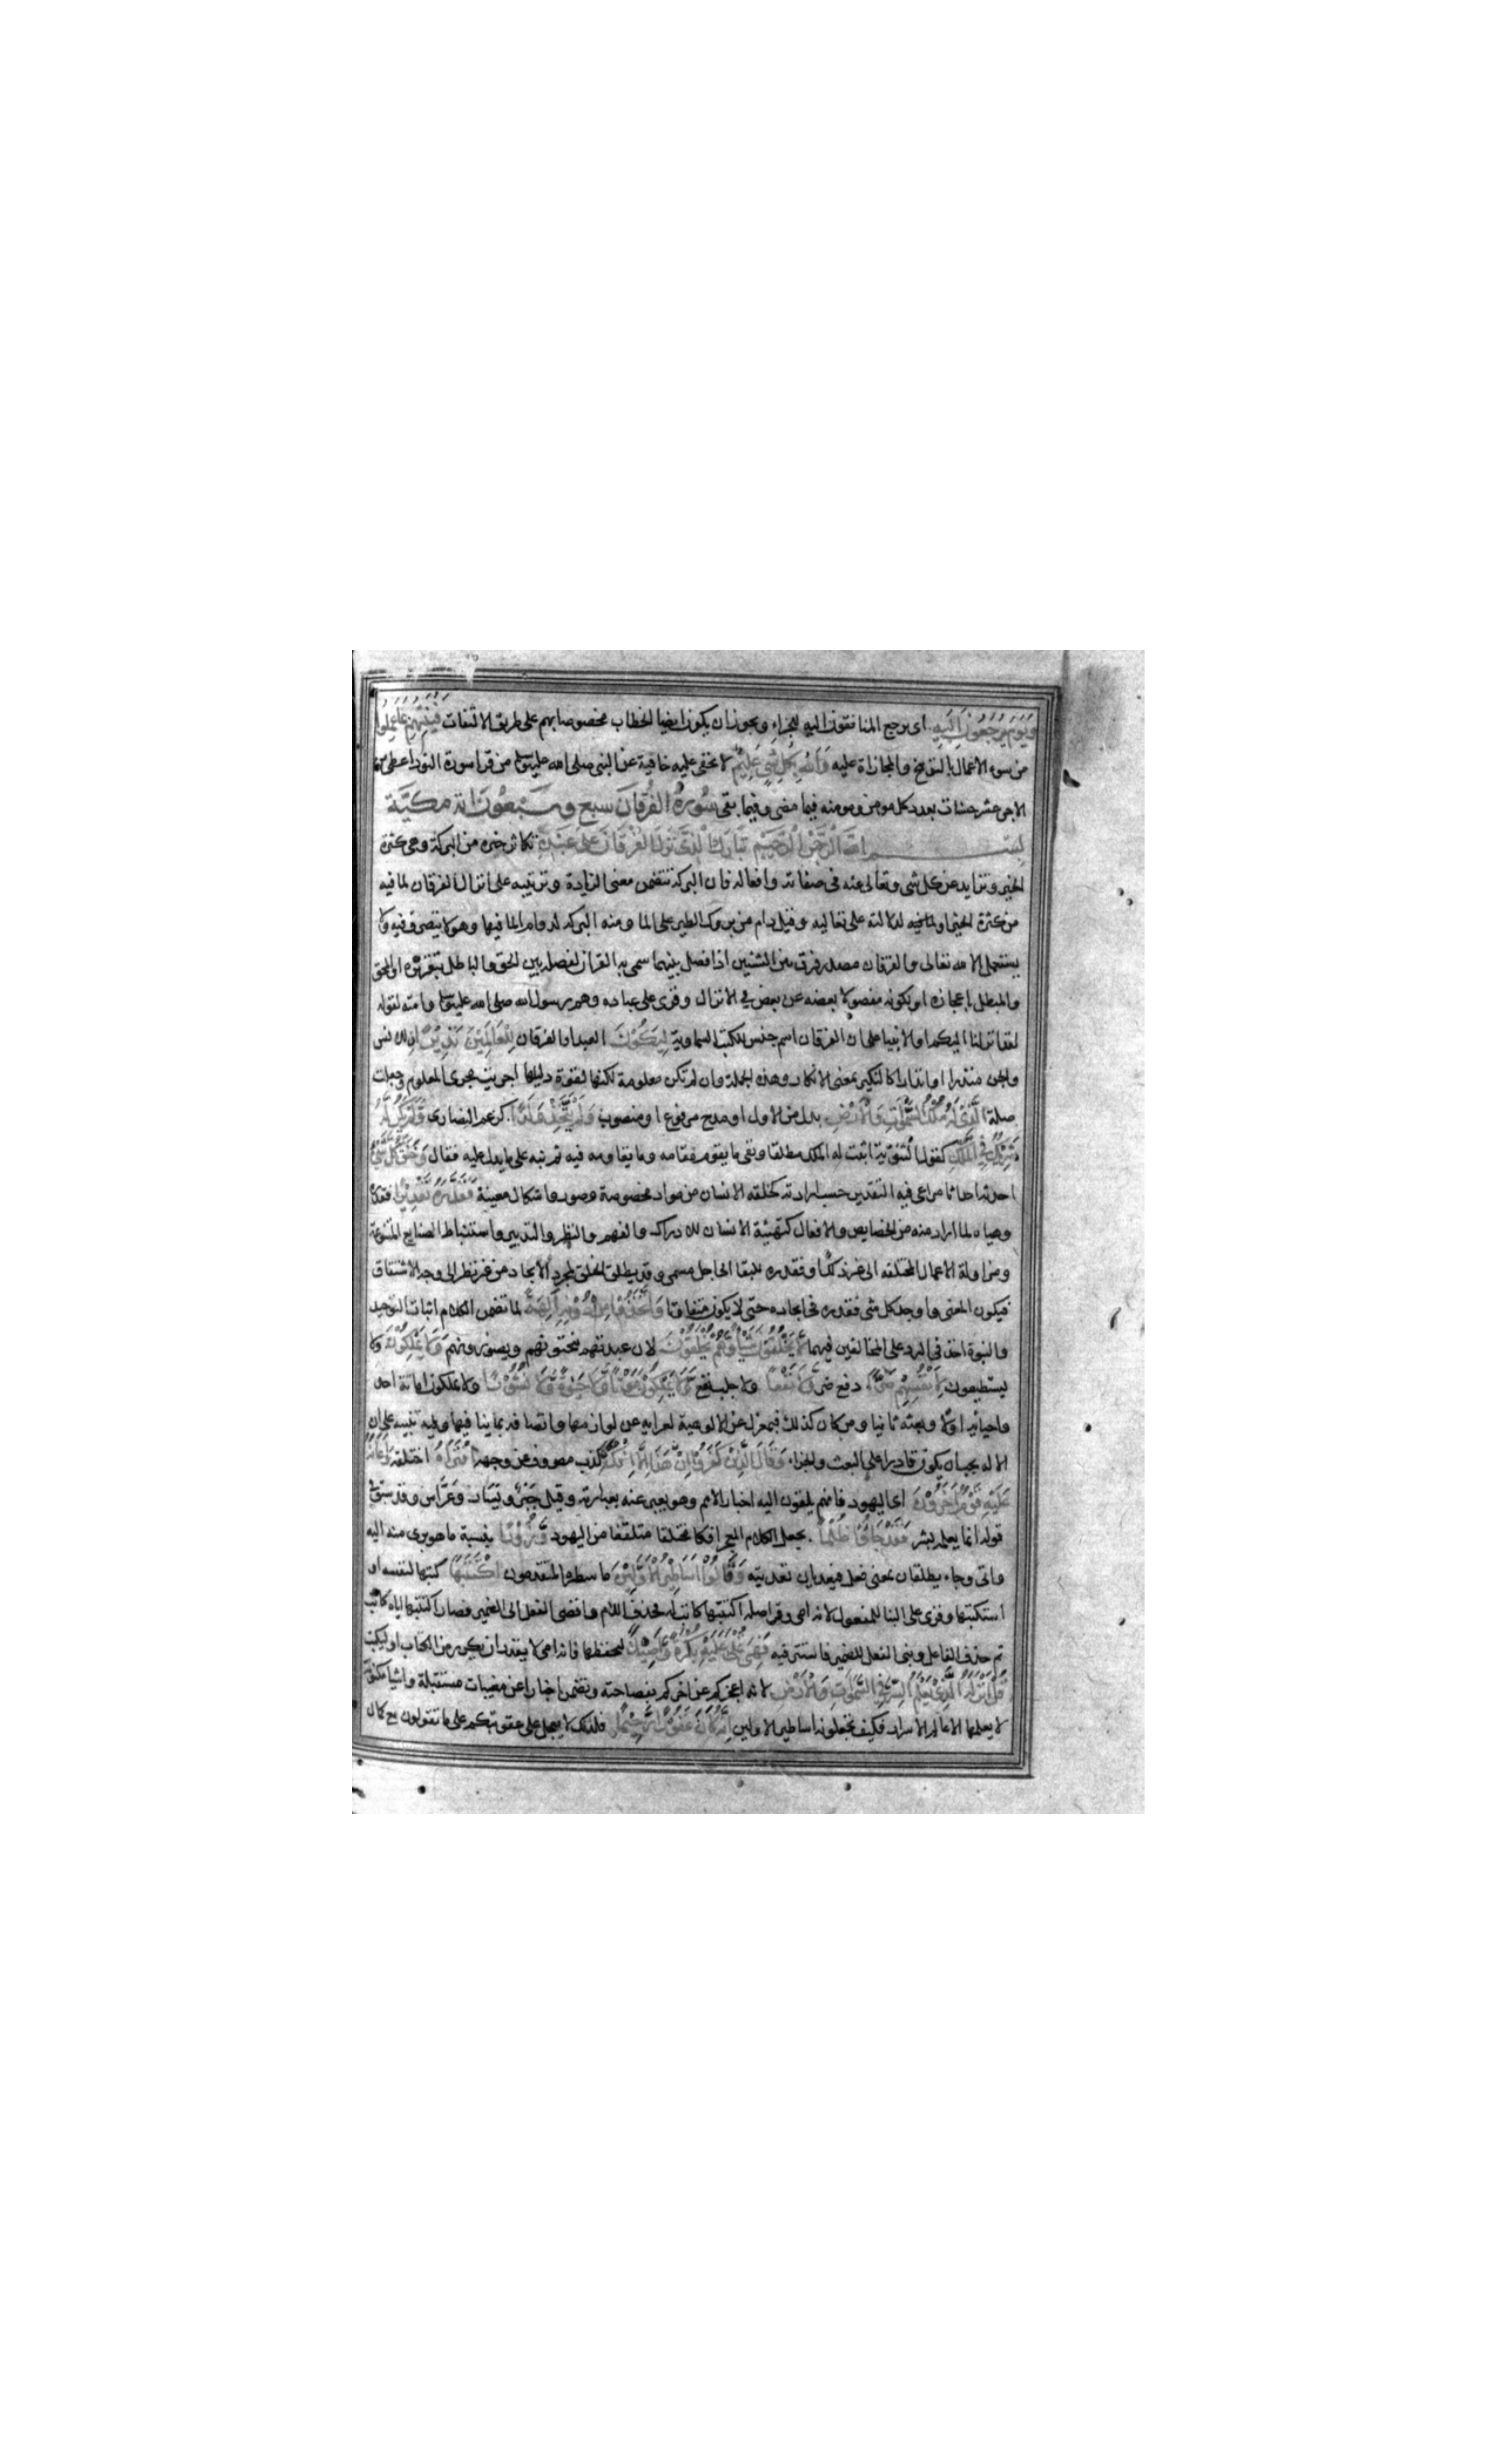 ويوم يرجعون اليه اى يرجع المنافقون اليه للجزاء ويجوز ان يكون ايضا الخطاب مخصوصا بهم على طريق الالتفات فينبئهم بما عملوا
من سوء الاعمال بالتوبيخ والمجازاة عليه والله بكل شئ عليم لا يخفى عليه خافية عن النبى صلى الله عليه وسلم من قرا سورة النور اعطى من
الاجر عشر حسنات بعدد كل مومن ومومنة فيما مضى وفيما بقى سورة الفرقان سبع وسبعون اية مكية
بسم الله الرحمن الرحيم تبارك الذى نزل الفرقان على عبده تكاثر خيره من البركة وهى كثرة
الخير وتزايد عن كل شى وتعالى عنه فى صفاته وافعاله فان البركة تتضمن معنى الزيادة وترتيبه على انزال الفرقان لما فيه
من كثرة الخير او لما فيه لدلالته على تعاليه وقيل دام من بروك الطير على الما ومنه البركة لدوام الما فيها وهو لا يتصرف فيه ولا
يستعمل الا لله تعالى والفرقان مصدر فرق بين الشئين اذا فصل بينهما سمى به القران لفصله بين الحق والباطل بتقريره او المحق
والمبطل باعجازه او لكونه مفصولا بعضه عن بعض في الانزال وقرى على عباده وهم رسول الله صلى الله عليه وسلم وامته لقوله
لقد انزلنا اليكم او الانبيا على ان الفرقان اسم جنس للكتب السماوية ليكون العبد او الفرقان للعالمين نذيرا للانس
والجن منذرا او انذارا كالنكير بمعنى الانكار وهذه الجملة وان لم تكن معلومة لكنها لقوة دليلها اجريت مجرى المعلوم وجعلت
صلة الذى له ملك السموات والارض بدل من الاول او مدح مرفوع او منصوب ولم يتخذ ولدا كزعم النصارى ولم يكن له
شريك فى الملك كقول الثنوية اثبت له الملك مطلقا ونفى ما يقوم مقامه وما يقاومه فيه ثم نبه على ما يدل عليه فقال وخلق كل شئ
احدثه احداثا مراعى فيه التقدير حسب ارادته كخلقه الانسان من مواد مخصوصة وصور واشكال معينة فقدره تقديرا فقدره
وهياه لما اراد منه من الخصايص والافعال كتهيئة الانسان للادراك والفهم والنظر والتدبير واستنباط الصنايع المتنوعة
ومزاولة الاعمال المختلفة الى غير ذلك او فقدره للبقا الى اجل مسمى وقد يطلق الخلق لمجرد الايجاد من غير نظر الى وجه الاشتقاق
فيكون المعنى واوجد كل شى فقدره فى ايجاده حتى لا يكون متفاوتا واتخذوا من دونه الهة لما تضمن الكلام اثبات التوحيد
والنبوة اخذ فى الرد على المخالفين فيهما لا يخلقون شيئا وهم يخلقون لان عبدتهم ينحتونهم ويصورونهم ولا يملكون ولا
يستطيعون لانفسهم ضرا دفع ضر ولا نفعا ولا جلب نفع ولا يملكون موتا ولا حيوة ولا نشورا ولا يملكون اماتة احد
واحيائه اولا وبعثه ثانيا ومن كان كذلك فبمعزل عن الالوهية لعرايه عن لوازمها واتصافه بما ينا فيها وفيه تنبيه على ان
الاله يجب ان يكون قادرا على البعث والجزاء وقال الذين كفروا ان هذا الا افك كذب مصروف عن وجهه افتراه اختلقه واعانه
عليه قوم اخرون اى اليهود فانهم يلقون اليه اخبار الامم وهو يعبر عنه بعبارته وقيل جبر ويسار وعداس وقد سبق فى
قوله انما يعلمه بشر فقد جاؤا ظلما بجعل الكلام المعجز افكا مختلقا متلقفا من اليهود وزورا بنسبة ما هو برى منه اليه
واتى وجاء يطلقان بمعنى فعل فيعديان تعديته وقالوا اساطير الاولين ما سطره المتقدمون اكتتبها كتبها لنفسه او
استكتبها وقرى على البنا للمفعول لانه امى وقر اصله اكتتبها كاتب له فحذف اللام وافضى الفعل الى الضمير فصار اكتتبها اياه كاتب
ثم حذف الفاعل وبنى الفعل للضمير فاستتر فيه فهى تملى عليه بكرة واصيلا ليحفظها فانه امى لا يقدر ان يكرر من الكتاب او ليكتب
قل انزله الذى يعلم السر فى السموات والارض لانه اعجزكم عن اخركم بفصاحته وتضمن اخبارا عن مغيبات مستقبلة واشيا مكنونة
لا يعلمها الا عالم الاسرار فكيف تجعلونه اساطير الاولين انه كان غفورا رحيما فلذلك لا يعجل على عقوبتكم على ما تقولون مع كمال